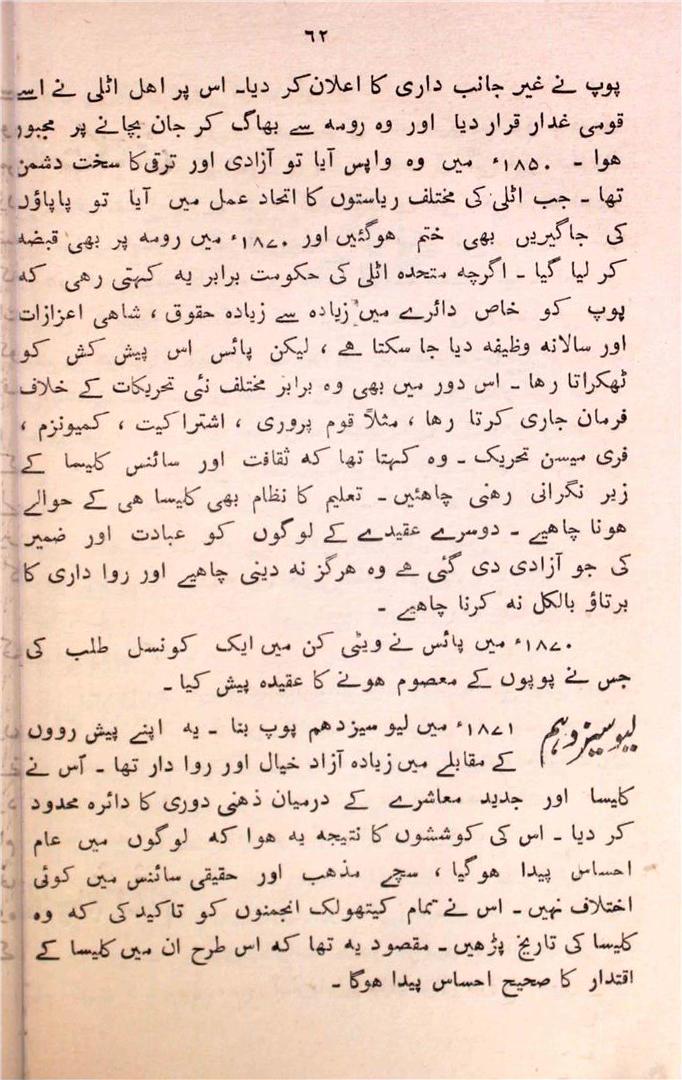 ٦٢
پوپ نے غیر جانب داری کا اعلان کر دیا۔ اس پر اهل اٹلی نے اسے
قومی غدار قرار دیا اور وہ رومه سے بھاگ کر جان بچانے پر مجبور
هوا ۔ ۱۸۵۰ء میں وہ واپس آیا تو آزادی اور ترقی کا سخت دشمن
تھا ۔ جب اٹلی کی مختلف ریاستوں کا اتحاد عمل میں آیا تو پاپاؤں
کی جاگیریں بھی ختم هوگئیں اور ۱۸۷۰ء میں رومه پر بھی قبضه
کر لیا گیا ۔ اگرچه متحدہ اٹلی کی حکومت برابر یه کہتی رهی که
پوپ کو خاص دائرے میں زیادہ سے زیادہ حقوق ، شاهی اعزازات
اور سالانه وظیفه دیا جا سکتا هے ، لیکن پائس اس پیش کش کو
ٹھکراتا رها ۔ اس دور میں بھی وہ برابر مختلف نئی تحریکات کے خلاف
فرمان جاری کرتا رها ، مثلاً قوم پروری ، اشتراکیت ، کمیونزم ،
فری میسن تحریک ۔ وہ کہتا تھا که ثقافت اور سائنس کلیسا کے
زیر نگرانی رهنی چاهئیں ۔ تعلیم کا نظام بھی کلیسا هی کے حوالے
هونا چاهیے ۔ دوسرے عقیدے کے لوگوں کو عبادت اور ضمیر
کی جو آزادی دی گئی هے وہ هرگز نه دینی چاهیے اور روا داری کا
برتاؤ بالکل نه کرنا چاهیے ۔
۱۸۷۰ء میں پائس نے ویٹی کن میں ایک کونسل طلب کی
جس نے پوپوں کے معصوم هونے کا عقیدہ پیش کیا ۔
لیو سیزدہم ۱۸۷۱ء میں لیو سیزدهم پوپ بنا ۔ یه اپنے پیش رووں
کے مقابلے میں زیادہ آزاد خیال اور روا دار تھا ۔ اُس نے
کلیسا اور جدید معاشرے کے درمیان ذهنی دوری کا دائرہ محدود
کر دیا ۔ اس کی کوششوں کا نتیجه یه هوا که لوگوں میں عام
احساس پیدا هوگیا ، سچے مذهب اور حقیقی سائنس میں کوئی
اختلاف نہیں ۔ اس نے تمام کیتھولک انجمنوں کو تاکید کی که وہ
کلیسا کی تاریخ پڑھیں ۔ مقصود یه تھا که اس طرح ان میں کلیسا کے
اقتدار کا صحیح احساس پیدا هوگا ۔